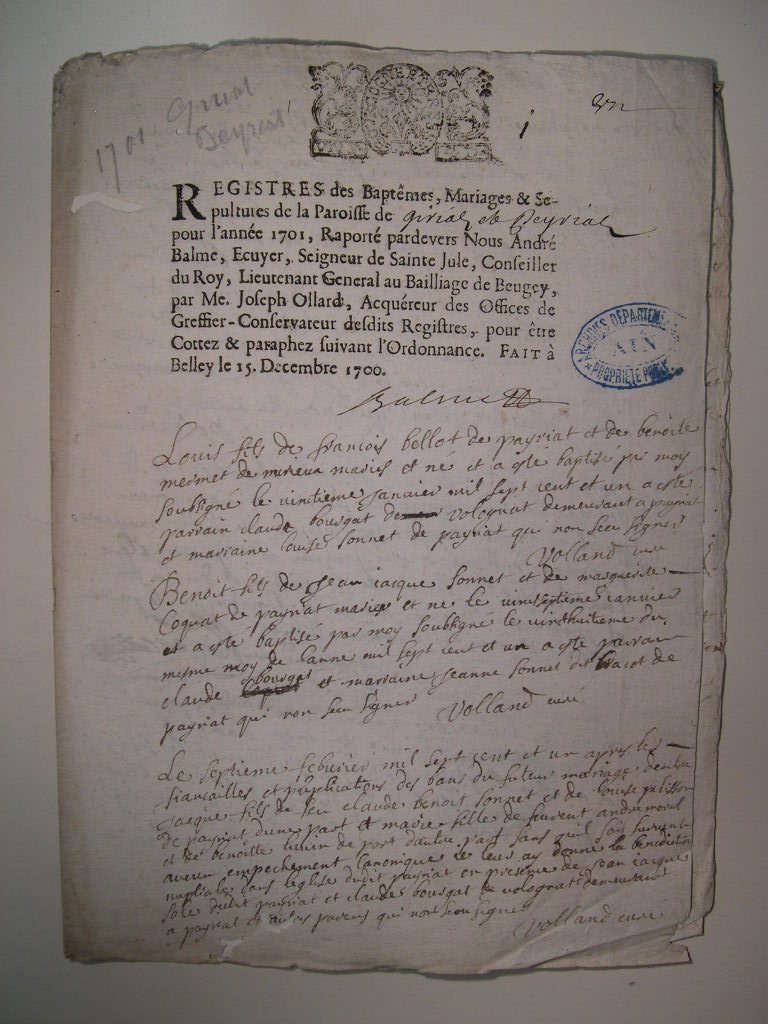 1701 Girial
Peyriat
REGISTRES des Baptêmes, Mariages & Se-
pultures de la Paroisse de Girial et Peyriat
pour l'année 1701, Raporté pardevers Nous André
Balme, Ecuyer, Seigneur de Sainte Jule, Conseiller
du Roy, Lieutenant General au Bailliage de Beugey,
par Me. Joseph Ollard, Acquéreur des Offices de
Greffier-Conservateur desdits Registres, pour être
Cottez & paraphez suivant l'Ordonnance. FAIT à
Belley le 15. Decembre 1700.
Balme
ARCHIVES DÉPARTEMENT
AIN
PROPRIÉTÉ PUBL
Louis fils de françois bellot de payriat et de benoite
mermet de mirieux mariés et né et a esté baptisé par moy
soubsigné le vintieme janvier mil sept cent et un a esté
parrain claude bourgat de volognat demeurant a payriat
et marraine louise sonnet de payriat qui non sceu signer
Volland curé
Benoit fils de jean jacque sonnet et de marguerite
Coquat de payriat mariés et né le vintseptieme janvier
et a esté baptisé par moy soubsigné le vinthuitieme du
mesme moy de lanne mil sept cent et un a esté parrain
claude bourgat et marraine jeanne sonnet dit de
payriat qui non sceu signer Volland curé
Le septieme feburier mil sept cent et un apres les
fiancailles et publications des bans du futeur mariage dentre
jacque fils de feu claude benoit sonnet et de louise
de payriat dune part et marie fille de laurent
et de benoitte de port dautre part sans quil soit survenu
aucun empechement canonique je leur ay donné la benediction
nuptiale dans leglise dudit payriat en presence de jean jacque
dudit payriat et claude bourgat de volognat demeurant
a payriat et autres parens qui non sceu signer
Volland curé